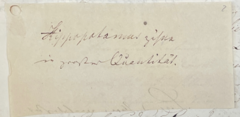 Hippopotamus zähne
in großer Quantität.